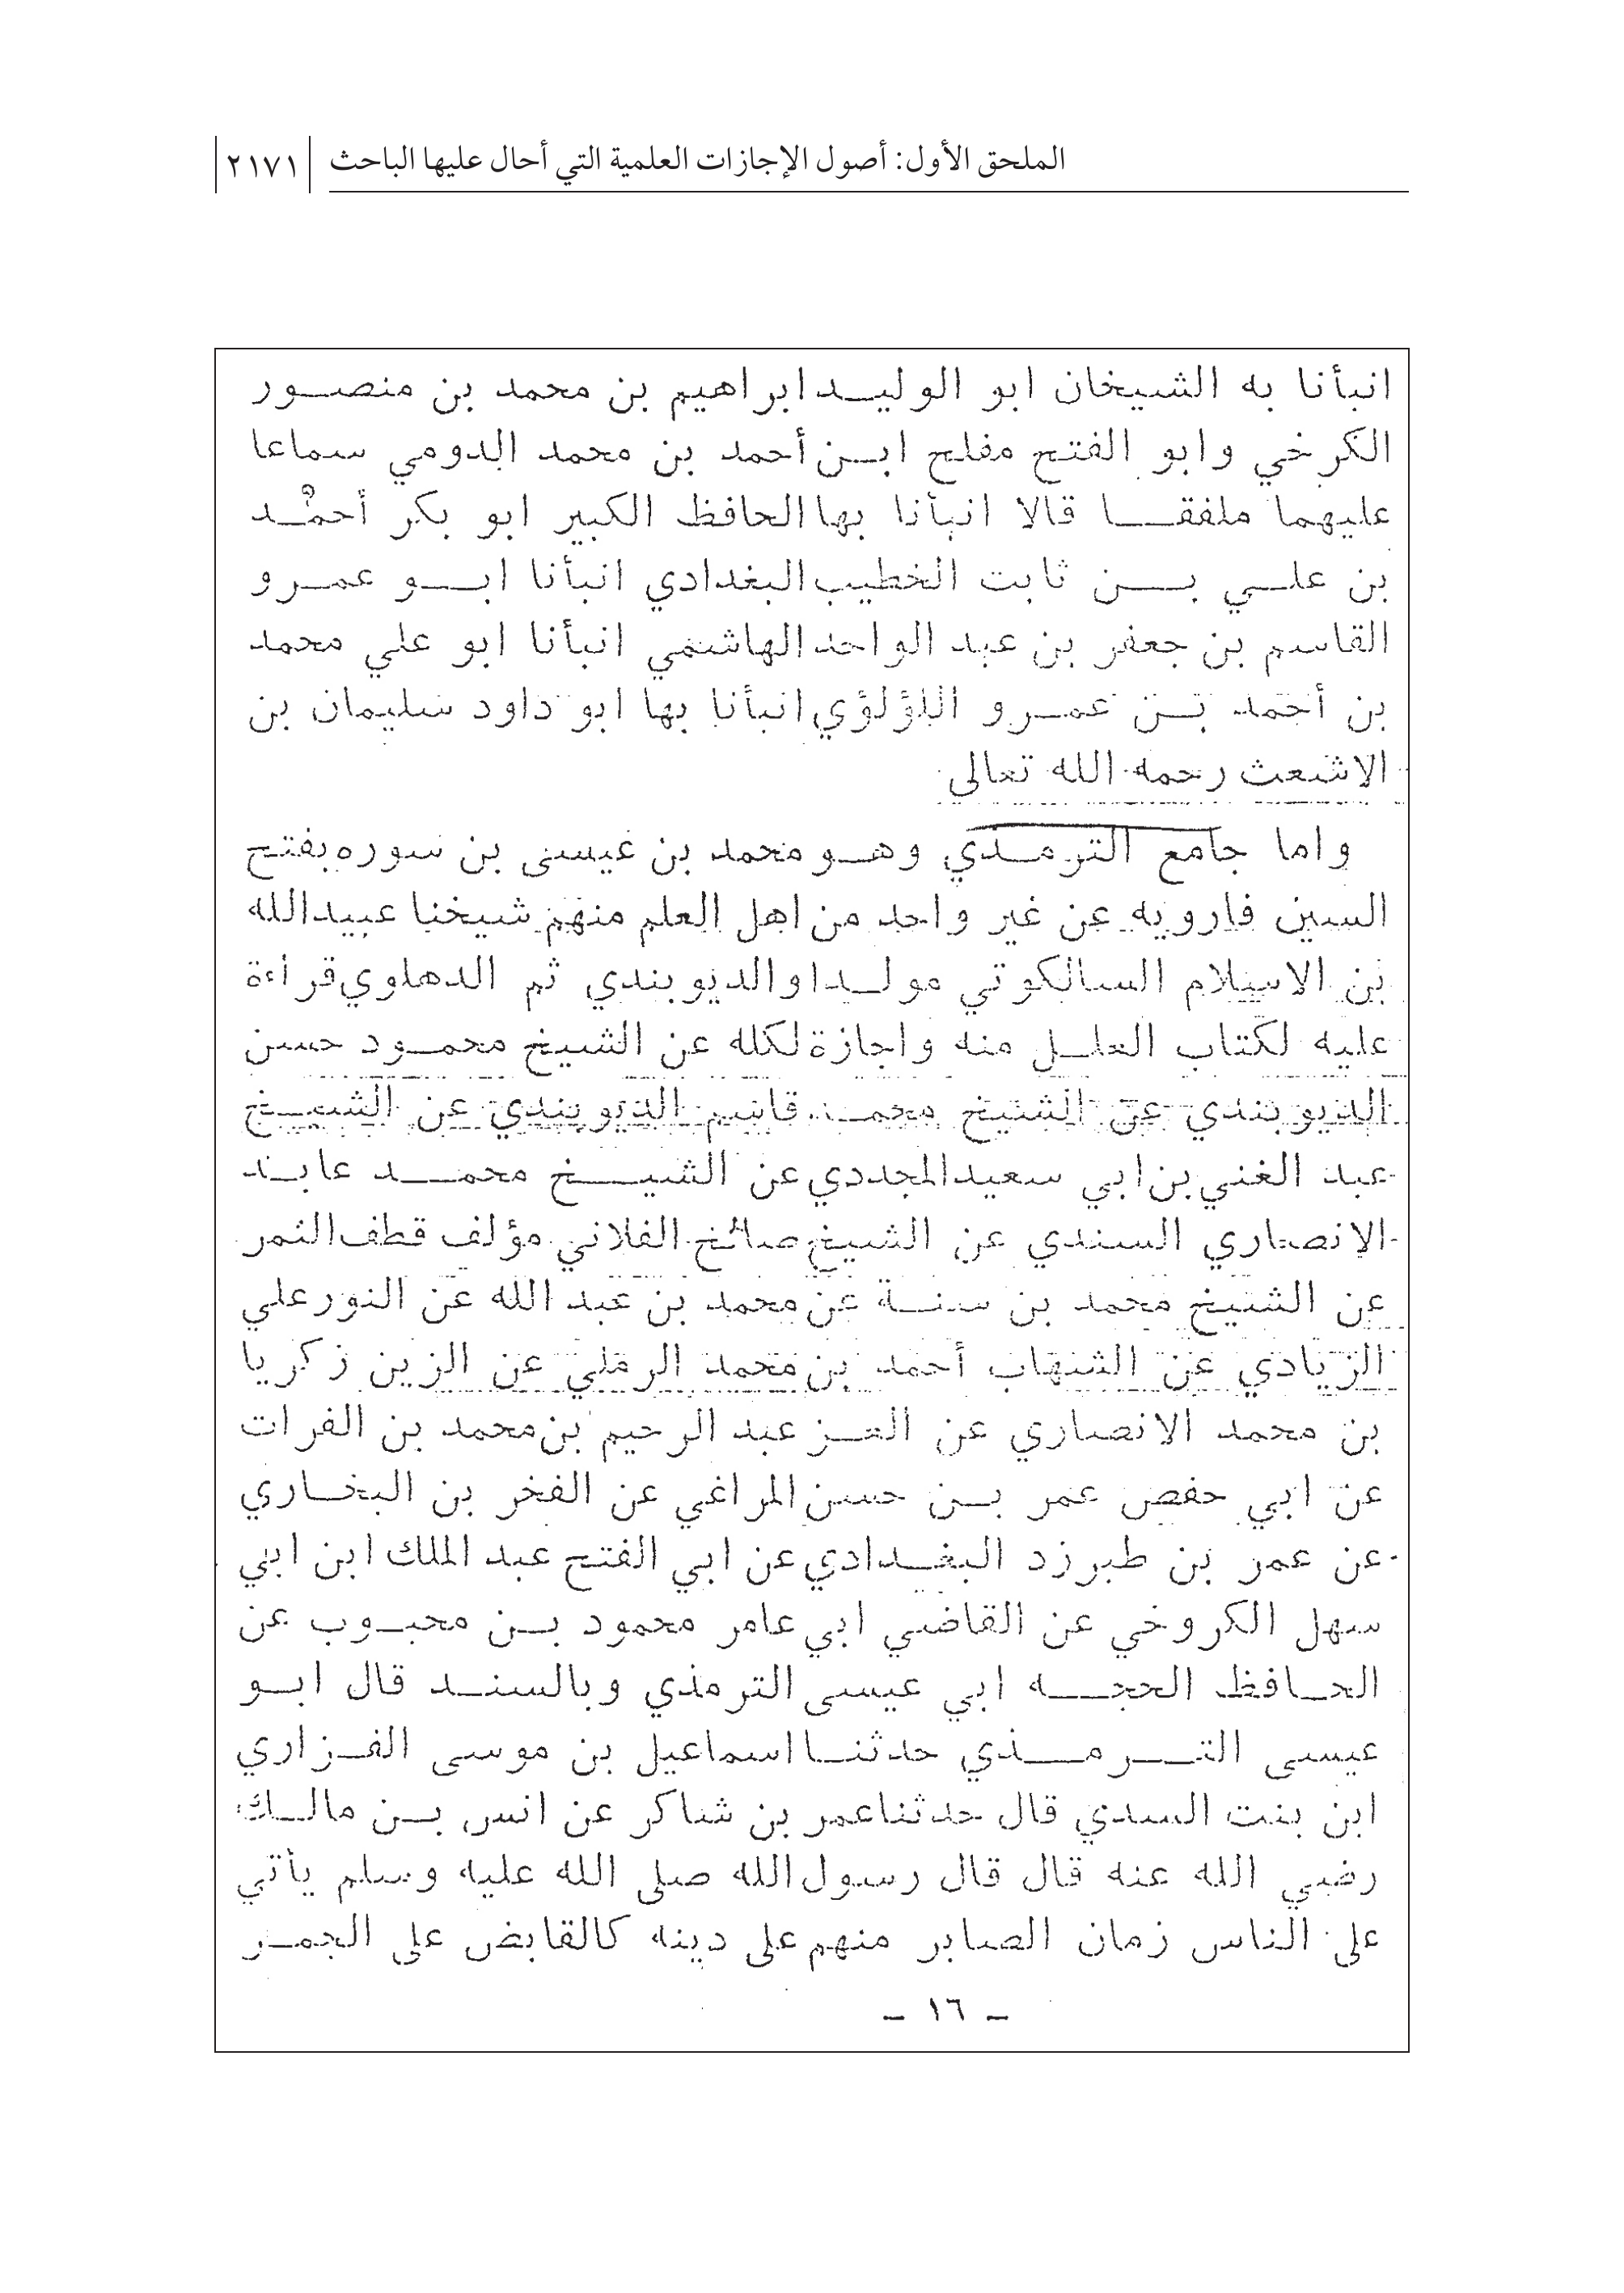 الملحق الأول: أصول الإجازات العلمية التي أحال عليها الباحث ٢١٧١
انبأنا به الشيخان ابو الوليد ابراهيم بن محمد بن منصور
الكرخي وابو الفتح مفلح ابن أحمد بن محمد الدومي سماعا
عليهما ملفقا قالا انبأنا بها الحافظ الكبير ابو بكر أحمد
بن علي بن ثابت الخطيب البغدادي انبأنا ابو عمرو
القاسم بن جعفر بن عبد الواحد الهاشمي انبأنا ابو علي محمد
بن أحمد بن عمرو اللؤلؤي انبأنا بها ابو داود سليمان بن
الاشعث رحمه الله تعالى
واما جامع الترمذي وهو محمد بن عيسى بن سوره بفتح
السين فارويه عن غير واحد من اهل العلم منهم شيخنا عبيدالله
بن الاسلام السالكوتي مولدا والديوبندي ثم الدهلوي قراءة
عليه لكتاب العلل منه واجازة لكله عن الشيخ محمود حسن
الديوبندي عن الشيخ محمد قاسم الديوبندي عن الشيخ
عبد الغني بن ابي سعيد المجددي عن الشيخ محمد عابد
الانصاري السندي عن الشيخ صالح الفلاني مؤلف قطف الثمر
عن الشيخ محمد بن سنة عن محمد بن عبد الله عن النور علي
الزيادي عن الشهاب أحمد بن محمد الرملي عن الزين زكريا
بن محمد الانصاري عن العز عبد الرحيم بن محمد بن الفرات
عن ابي حفص عمر بن حسن المراغي عن الفخر بن البخاري
عن عمر بن طبرزد البغدادي عن ابي الفتح عبد الملك ابن ابي
سهل الكروخي عن القاضي ابي عامر محمود بن محبوب عن
الحافظ الحجه ابي عيسى الترمذي وبالسند قال ابو
عيسى الترمذي حدثنا اسماعيل بن موسى الفزاري
ابن بنت السدي قال حدثنا عمر بن شاكر عن انس بن مالك
رضي الله عنه قال قال رسول الله صلى الله عليه وسلم يأتي
على الناس زمان الصابر منهم على دينه كالقابض على الجمر
– ١٦ –